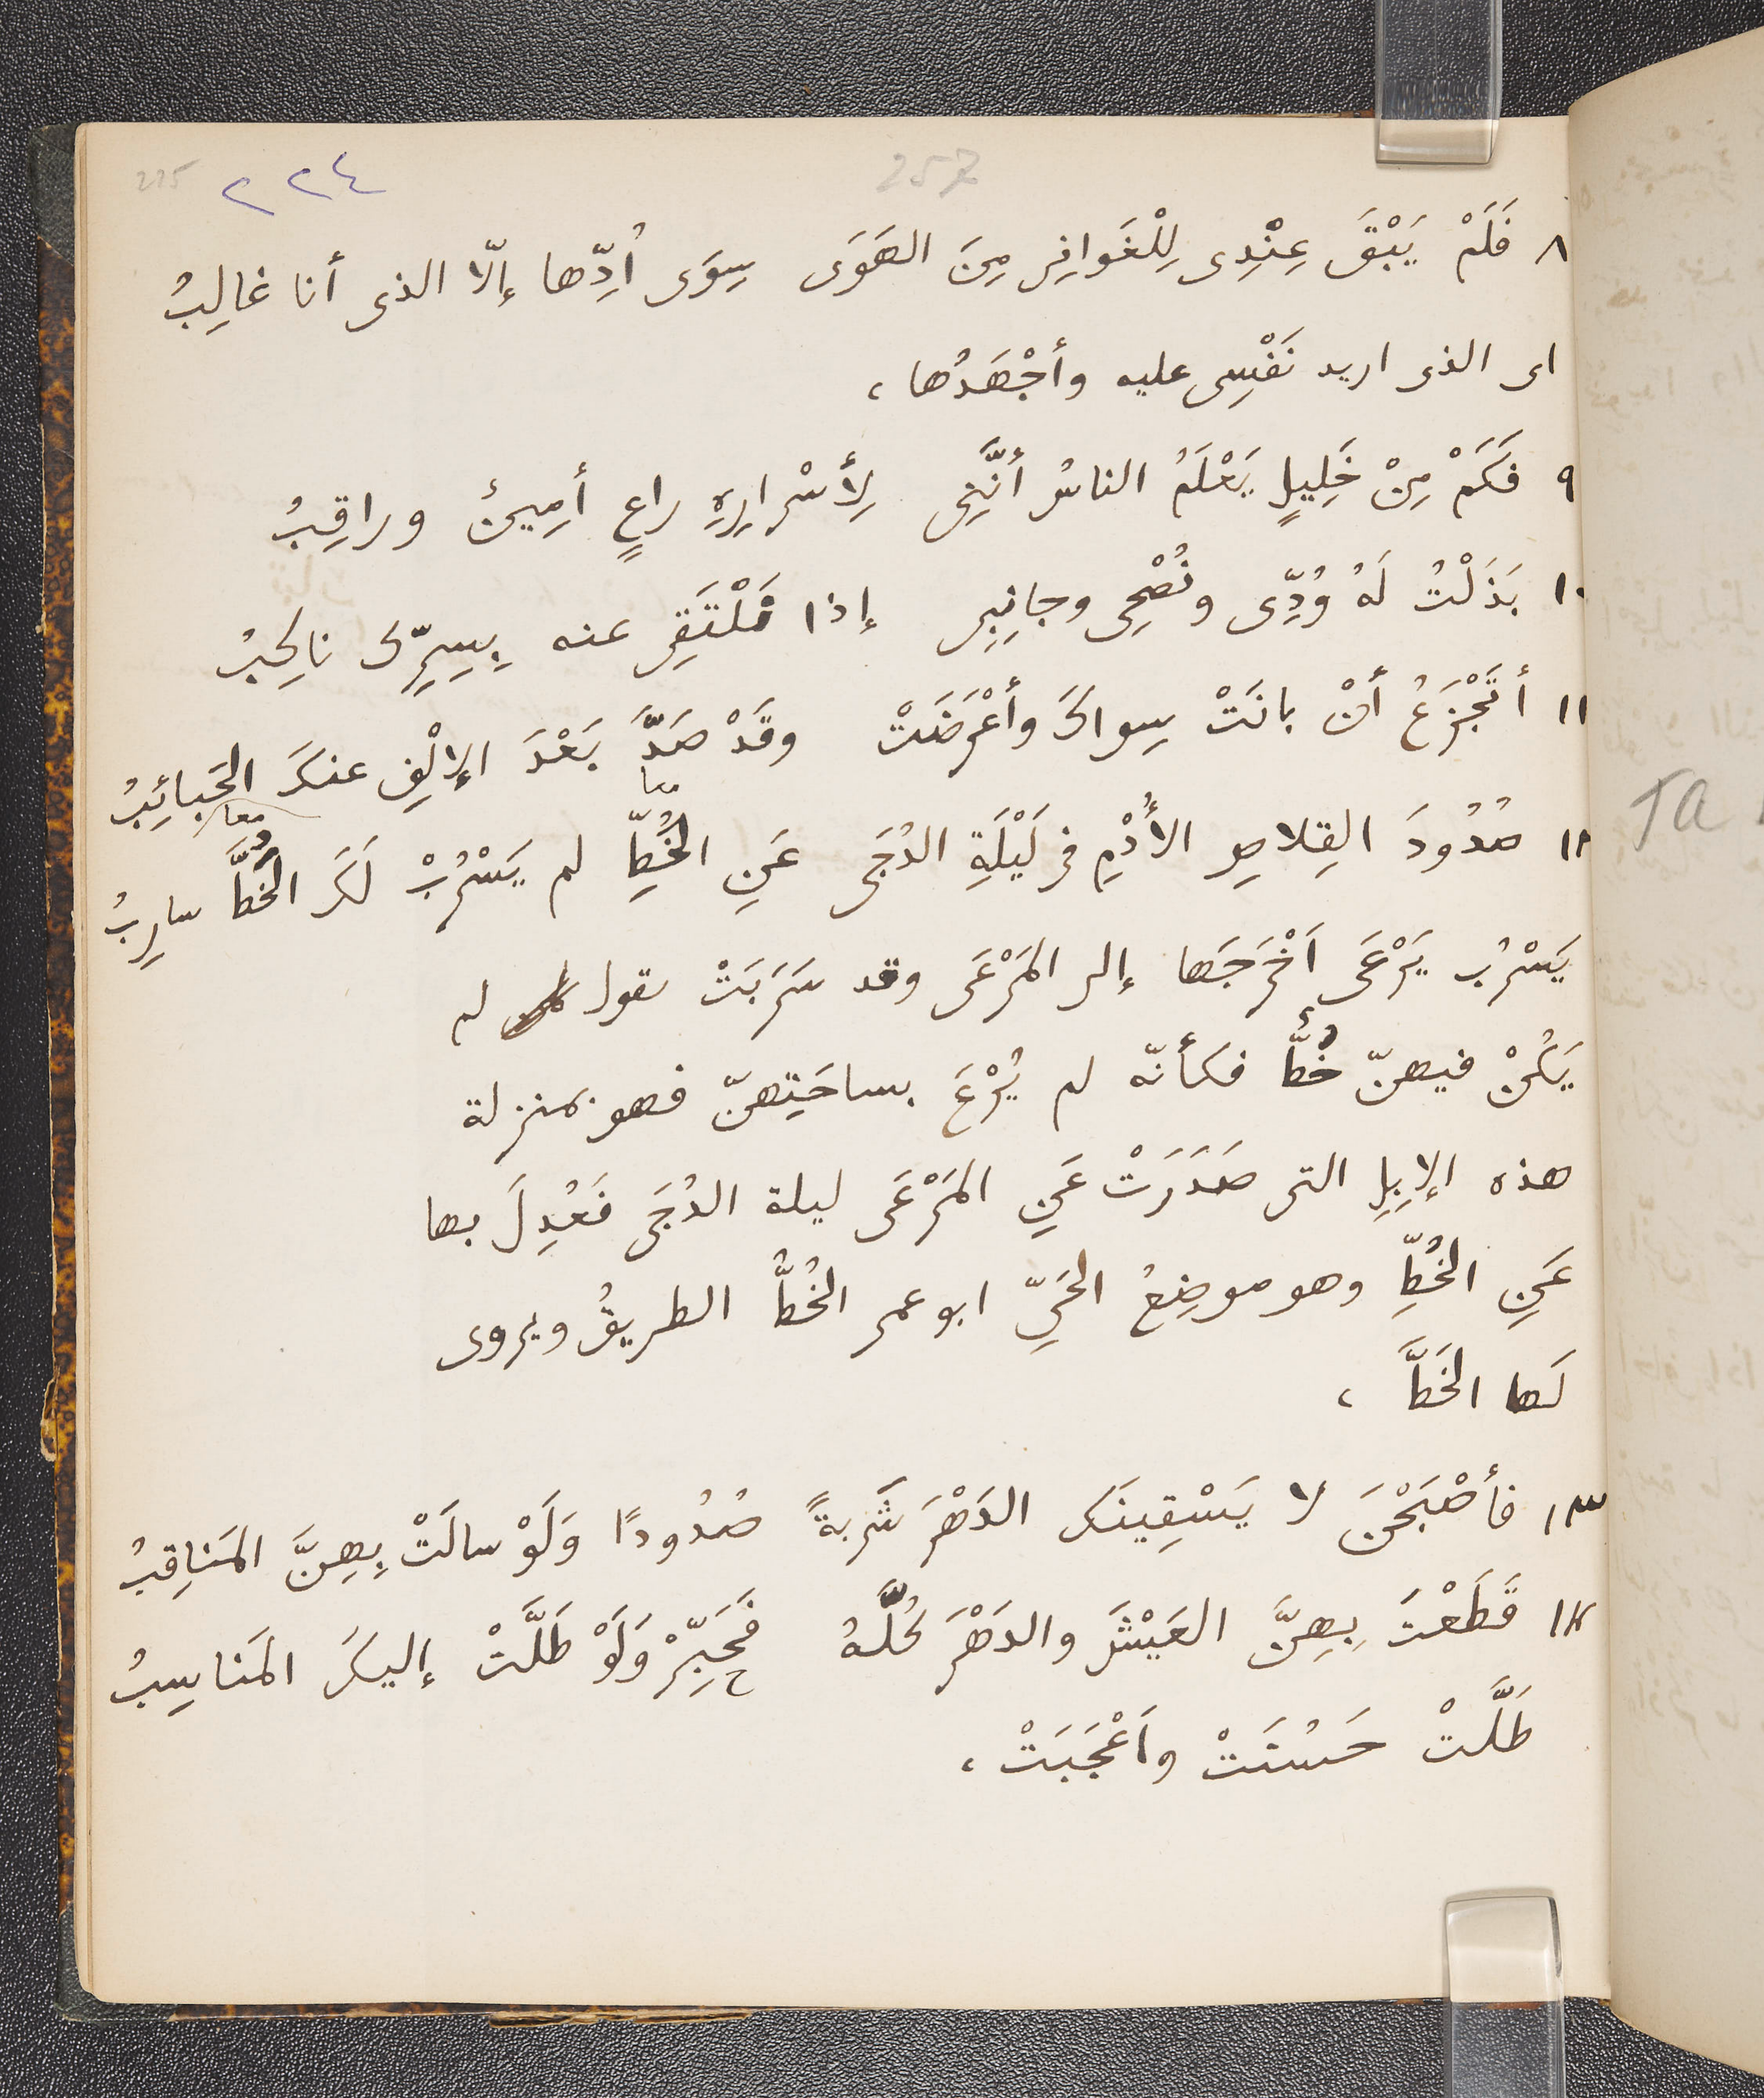 257
٢٢٤ 225
٨ فَلَمْ يَبْقَ عِنْدِى لِلْغَوَانِى مِنَ الهَوَى سِوَى اُدِّها إلّا الذى أنا غالِبُ
اى الذى اريد نَفْسِى عليه وأجْهَدُها ،
٩ فَكَمْ مِنْ خَلِيلٍ يَعْلَمُ الناسُ أنَّنِى لِأَسْرارِهِ راعٍ أمِينٌ وراقِبُ
١٠ بَذَلْتُ لَهُ وُدِّى ونُصْحِى وجانِبِى إذا مَلْتَقِى عنه بِسِرِّكَ ناكِبُ
١١ أتَجْزَعُ أنْ بانَتْ سِواكَ وأعْرَضَتْ وقَدْ صَدَّ بَعْدَ الإلْفِ عنكَ الحَبائِبُ
معا معا
١٢ صُدُودَ القِلاصِ الأُدْمِ فى لَيْلَةِ الدُجَى عَنِ الخُطِّ لم يَسْرُبْ لَكَ الخُطَّ سارِبُ
يَسْرُب يَرْعَى اَخْرَجَها إلى المَرْعَى وقد سَرَبَتْ يقول لم
يَكُنْ فيهنّ خُطٌّ فكأنّه لم يُرْعَ بساحَتِهنّ فهو بمنزلة
هذه الإبِلِ التى صَدَرَتْ عَنِ المَرْعَى ليلة الدُجَى فَعُدِلَ بها
عَنِ الخُطِّ وهو موضِعُ الحَىِّ ابو عمر الخُطُّ الطريقُ ويروى
لَها الخَطَّ ،
١٣ فأصْبَحْنَ لا يَسْقِينَك الدَهْرَ شَربةً صُدُودًا وَلَوْ سالَتْ بِهِنَّ المَناقِبُ
١٤ قَطَعْتَ بِهِنَّ العَيْشَ والدَهْرَ كُلَّهُ فَحَبِّرْ وَلَوْ طَلَّتْ إليكَ المَناسِبُ
طَلَّتْ حَسُنَتْ واَعْجَبَتْ ،
Ta